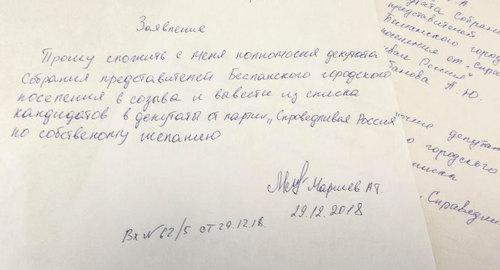 Заявление
Прошу сложить с меня полномочия депутата
Собрания представителей Бесланского городского
поселения 5 созыва и вывести из списка
кандидатов в депутаты от партии „Справедливая Россия
по собственому желанию
Маршев А.Т.
29.12.2018
Вх №62/5 от 29.12.18.
депутата Собрания
представителей
Бесланского город
Россия"
А. Ю.
депутат
городского
Справедлив